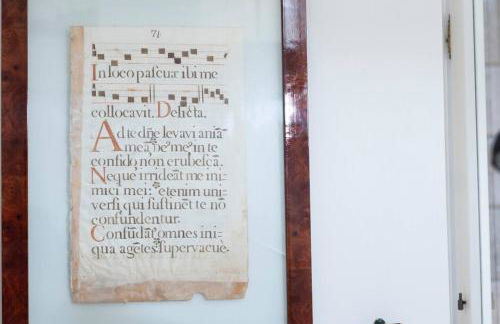 71
In loco paſcuæ ibi me
collocavit. Delicta.
Ad te dñe levavi aniã
meã De⁹ me⁹ in te
confido, non erubeſcã.
Neque irrideãt me ini=
mici mei: etenim uni=
verſi qui ſuſtinẽt te nõ
confundentur.
Confũdãt⁹ omnes ini=
qua agẽtes ſupervacuè.